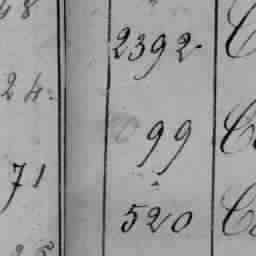 48
2392.
24.
99
71
520